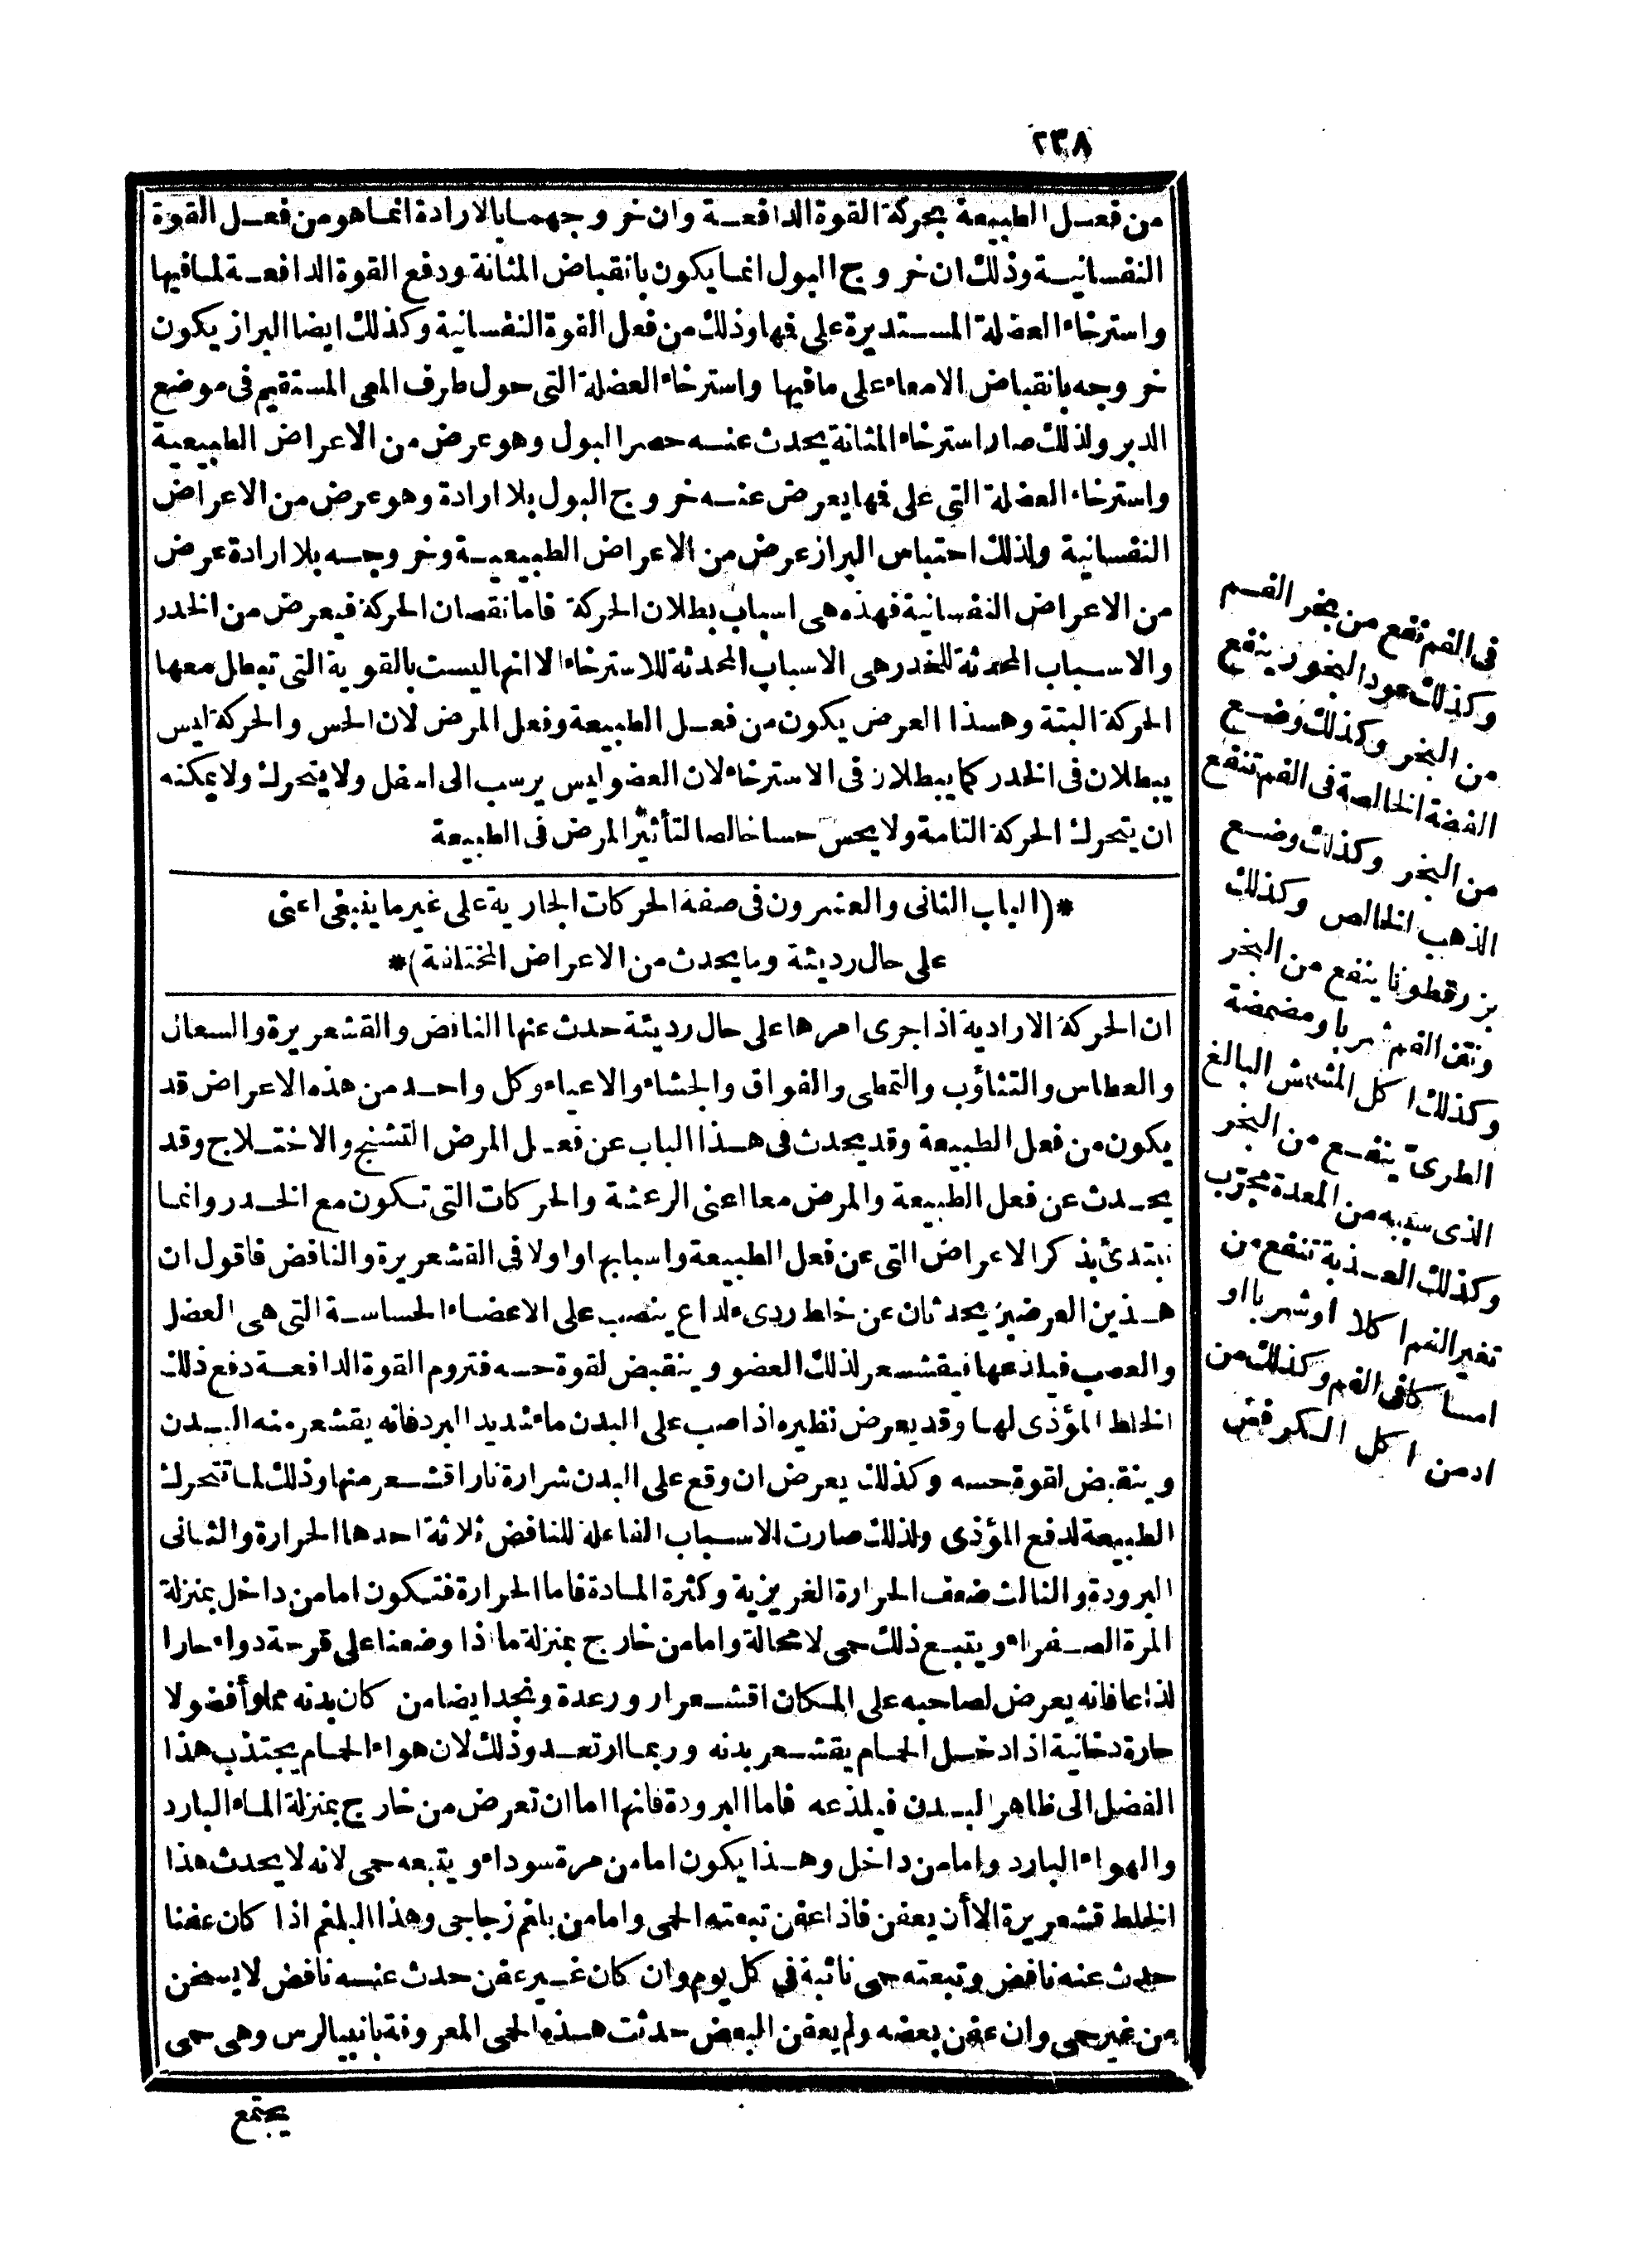 ٢٣٨
من فعل الطبيعة بحركة القوة الدافعة وان خروجهما بالارادة انما هو من فعل القوة
النفسانية وذلك ان خروج البول انما يكون بانقباض المثانة ودفع القوة الدافعة لما فيها
واسترخاء العضلة المستديرة على فها وذلك من فعل القوة النفسانية وكذلك ايضا البراز يكون
خروجه بانقباض الامعاء على ما فيها واسترخاء العضلة التى حول طرف المعى المستقيم فى موضع
الدبر ولذلك صار استرخاء المثانة يحدث عنه حصر البول وهو عرض من الاعراض الطبيعية
واسترخاء العضلة التى على فها يعرض عنه خروج البول بلا ارادة وهو عرض من الاعراض
النفسانية ولذلك احتباس البراز عرض من الاعراض الطبيعية وخروجه بلا ارادة عرض
من الاعراض النفسانية فهذه هى اسباب بطلان الحركة فاما نقصان الحركة فيعرض من الخدر
والاسباب المحدثة للخدر هى الاسباب المحدثة للاسترخاء الا انها ليست بالقوية التى تبطل معها
الحركة البتة وهذا العرض يكون من فعل الطبيعة وفعل المرض لان الحس والحركة ليس
يبطلان فى الخدر كما يبطلان فى الاسترخاء لان العضو ليس يرسب الى اسفل ولا يتحرك ولا يمكنه
ان يتحرك الحركة التامة ولا يحس حسا خالصا لتأثير المرض فى الطبيعة
*(الباب الثانى والعشرون فى صفة الحركات الجارية على غير ما ينبغى اعنى
على حال رديئة وما يحدث من الاعراض المختلفة)*
ان الحركة الارادية اذا جرى امرها على حال رديئة حدث عنها النافض والقشعريرة والسعال
والعطاس والتثاؤب والتمطى والفواق والجشاء والاعياء وكل واحد من هذه الاعراض قد
يكون من فعل الطبيعة وقد يحدث فى هذا الباب عن فعل المرض التشنج والاختلاج وقد
يحدث عن فعل الطبيعة والمرض معا اعنى الرعشة والحركات التى تكون مع الخدر وانما
نبتدئ بذكر الاعراض التى عن فعل الطبيعة واسبابها واولا فى القشعريرة والنافض فاقول ان
هذين العرضين يحدثان عن خلط ردىء لداع ينصب على الاعضاء الحساسة التى هى العضل
والعصب فيلذعها فيقشعر لذلك العضو وينقبض لقوة حسه فتروم القوة الدافعة دفع ذلك
الخلط المؤذى لها وقد يعرض نظيره اذا صب على البدن ماء شديد البرد فانه يقشعر منه البدن
وينقبض لقوة حسه وكذلك يعرض ان وقع على البدن شرارة نار اقشعر منها وذلك لما تتحرك
الطبيعة لدفع المؤذى ولذلك صارت الاسباب الفاعلة للنافض ثلاثة احدها الحرارة والثانى
البرودة والثالث ضعف الحرارة الغريزية وكثرة المادة فاما الحرارة فتكون اما من داخل بمنزلة
المرة الصفراء ويتبع ذلك حمى لا محالة واما من خارج بمنزلة ما اذا وضعنا على قرحة دواء حارا
لذاعا فانه يعرض لصاحبه على المكان اقشعرار ورعدة ونجد ايضا من كان بدنه مملوأ فضولا
حارة دخانية اذا دخل الحمام يقشعر بدنه وربما ارتعد وذلك لان هواء الحمام يجتذب هذا
الفضل الى ظاهر البدن فيلذعه فاما البرودة فانها اما ان تعرض من خارج بمنزلة الماء البارد
والهواء البارد واما من داخل وهذا يكون اما من مرة سوداء ويتبعه حمى لانه لا يحدث هذا
الخلط قشعريرة الا أن يعفن فاذا عفن تبعته الحمى واما من بلغم زجاجى وهذا البلغم اذا كان عفنا
حدث عنه نافض وتبعته حمى نائبة فى كل يوم وان كان غير عفن حدث عنه نافض لا يسخن
من غير حمى وان عفن بعضه ولم يعفن البعض حدثت هذه الحمى المعروفة بانبيالرس وهى حمى
يجتمع
فى الفم تنفع من بخر الفم
وكذلك عود البخور ينفع
من البخر وكذلك وضع
الفضة الخالصة فى الفم تنفع
من البخر وكذلك وضع
الذهب الخالص وكذلك
بزر قطونا ينفع من البخر
ونتن الفم شربا ومضمضة
وكذلك اكل المشمش البالغ
الطرىّ ينفع من البخر
الذى سببه من المعدة مجرّب
وكذلك العذبة تنفع من
تغير الفم اكلا او شربا او
امساكا فى الفم وكذلك من
ادمن اكل الكرفس